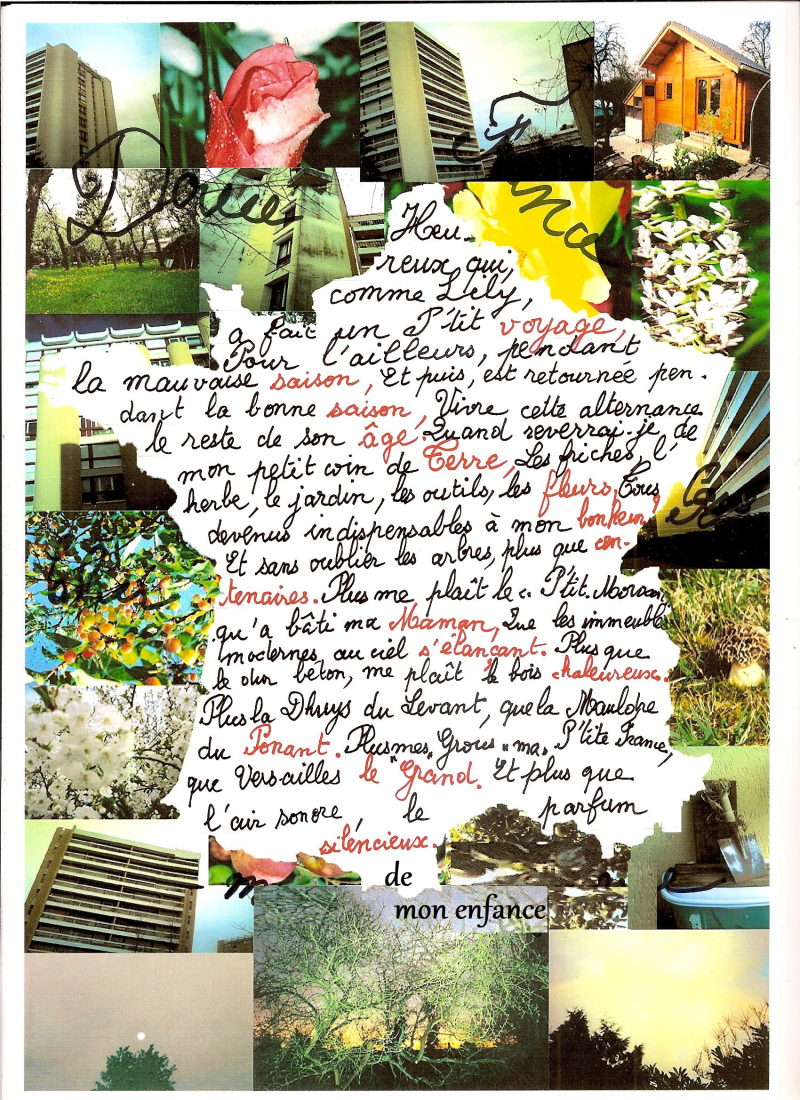 Douce
France
Heu-
reux qui,
comme Lily,
a fait un P'tit voyage,
Pour l'ailleurs, pendant
la mauvaise saison, Et puis, est retournée pen-
dant la bonne saison, Vivre cette alternance
le reste de son âge. Quand reverrai-je de
mon petit coin de Terre, Les friches, l'
herbe, le jardin, les outils, les fleurs, Tous
devenus indispensables à mon bonheur?
Et sans oublier les arbres, plus que cen-
tenaires. Plus me plaît le P'tit.
qu'a bâti ma Maman, Que les immeubl
modernes, au ciel s'élancant. Plus que
le dur béton, me plaît le bois chaleureux.
Plus la Dhuys du Levant, que la Mauldre
du Ponant. Plus mes "Grous" ma P'tite France,
que Versailles le "Grand. Et plus que
l'air sonore, le parfum
silencieux.
de
mon enfance